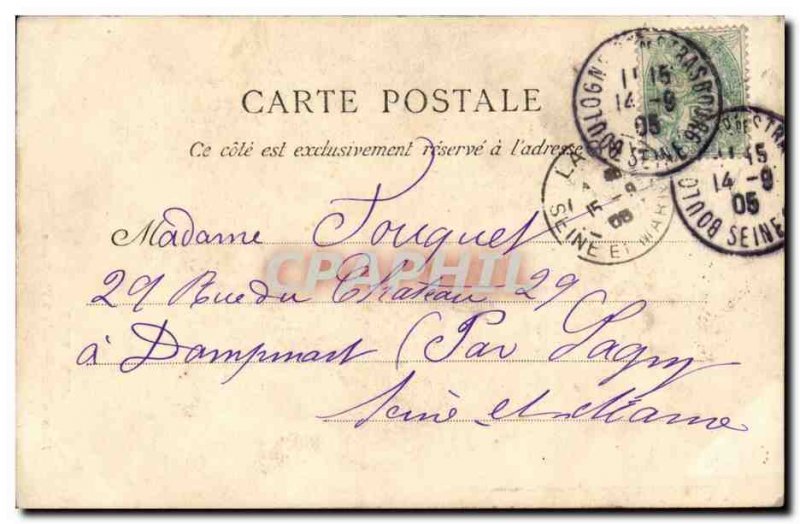 CARTE POSTALE
Ce côté est exclusivement réservé à l'adresse
BOULOGNE STRASBOURG SEINE
11 15
14 -9
05
STRA
BOULOG SEINE
11 15
14 -9
05
LA
SEINE ET MAR
15 -9
05
Madame Fouquet
CPAPHIL
29 Rue du Château 29
à Dampmart (Par Lagny
Seine et Marne